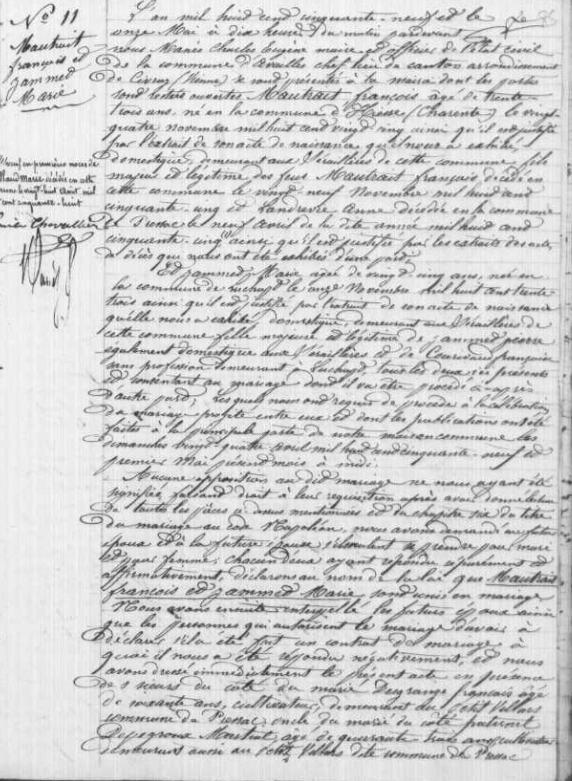 N° 11
Mautrait
françois et
Jammed
Marie
L'an mil huit cent cinquante-neuf et le
onze Mai à dix heures du matin pardevant
nous Charles Eugène maire et officier de l'état civil
de la commune d'Availles chef lieu de canton arrondissement
de Civray (Vienne) se sont présentés à la mairie dont les portes
sont restées ouvertes Mautrait françois âgé de trente
trois ans, né en la commune d'Hiesse (Charente) le vingt
quatre novembre mil huit cent vingt cinq ainsi qu'il est justifié
par l'extrait de son acte de naissance qu'il nous a exhibé
domestique, demeurant aux de cette commune fils
majeur et légitime des feus Mautrait françois décédé en
cette commune le vingt neuf Novembre mil huit cent
cinquante-cinq et Landrevie Anne décédée en la commune
de Pressac le neuf avril de la dite année mil huit cent
cinquante-cinq ainsi qu'il est justifié par les extraits des actes
de décès qui nous ont été exhibés d'une part
Et Jammed Marie âgée de vingt cinq ans, née en
la commune de le onze Novembre mil huit cent trente
trois ainsi qu'il est justifié par l'extrait de son acte de naissance
qu'elle nous a exhibé, domestique, demeurant aux de
cette commune fille majeure et légitime de Jammed pierre
également domestique aux et de françoise
sans profession demeurant tous les deux ici présents
et consentant au mariage dont il va être procédé ci-après
d'autre part; lesquels nous ont requis de procéder à la célébration
du mariage projeté entre eux et dont les publications ont été
faites à la principale porte de notre maison commune les
dimanches vingt quatre avril mil huit cent cinquante-neuf et
premier Mai présent mois à midi
Aucune opposition audit mariage ne nous ayant été
signifiée faisant droit à leur requisition après avoir donné lecture
de toutes les pièces ci dessus mentionnées et du chapitre six du titre
du mariage au code Napoléon, nous avons demandé au futur
époux et à la future épouse s'ils veulent se prendre pour mari
et pour femme; chacun d'eux ayant répondu séparement et
affirmativement, déclarons au nom de la loi que Mautrait
françois et Jammed Marie sont unis en mariage
Nous avons ensuite interpellé les futurs époux ainsi
que les personnes qui autorisent le mariage d'avoir à
déclarer s'il a été fait un contrat de mariage à
quoi il nous a été répondu négativement, et nous
avons dressé immédiatement le présent acte en présence
de sieurs du côté du marié Desgrange françois âgé
de soixante ans, cultivateur, demeurant au petit Villars
commune de Pressac, oncle du marié du côté paternel
Mautrait, âgé de quarante trois ans cultivateur
demeurant aussi au petit Villars dite commune de Pressac